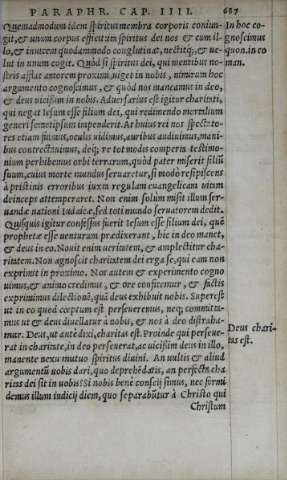 PARAPHR. CAP. IIII. 687
Quemadmodum idem spiritus membra corporis coniun-
git, & unum corpus efficit: ita spiritus dei nos & cum il-
lo, & inuicem quodammodo conglutinat, nectitq;, & ue-
lut in unum cogit. Quòd si spiritus dei, qui mentibus no-
stris afflat amorem proximi, uiget in nobis, nimirum hoc
argumento cognoscimus, & quòd nos maneamus in deo,
& deus uicissim in nobis. Aduersarius est igitur charitati,
qui negat Iesum esse filium dei, qui redimendo mortalium
generi semetipsum impenderit. At huius rei nos spectato-
res etiam sumus, oculis uidimus, auribus audiuimus, mani-
bus contrectauimus, deq; re tot modis comperta testimo-
nium perhibemus orbi terrarum, quòd pater miserit filiũ
suum, cuius morte mundus seruaretur, si modò resipiscens
à pristinis erroribus iuxta regulam euangelicam uitam
deinceps attemperaret. Non enim solum misit illum ser-
uandæ nationi iudaicæ, sed toti mundo seruatorem dedit.
Quisquis igitur confessus fuerit Iesum esse filium dei, quẽ
prophetæ esse uenturum prædixerant, hic in deo manet,
& deus in eo. Nouit enim ueritatem, & amplectitur cha-
ritatem. Non agnoscit charitatem dei erga se, qui eam non
exprimit in proximo. Nos autem & experimento cogno
uimus, & animo credimus, & ore confitemur, & factis
exprimimus dilectionẽ, quã deus exhibuit nobis. Superest
ut in eo quod cœptum est perseueremus, neq; committa-
mus ut & deus diuellatur à nobis, & nos à deo distraha-
mur. Deus, ut antè dixi, charitas est. Proinde qui perseue-
rat in charitate, in deo perseuerat, ac uicissim deus in illo,
manente nexu mutuo spiritus diuini. An uultis & aliud
argumentũ uobis dari, quo deprehẽdatis, an perfecta cha
ritas dei sit in uobis? Si nobis bene conscij simus, nec formi
demus illum iudicij diem, quo separabũtur à Christo qui
Christum
In hoc co-
gnoscimus
quon. in eo
man.
Deus chari-
tas est.